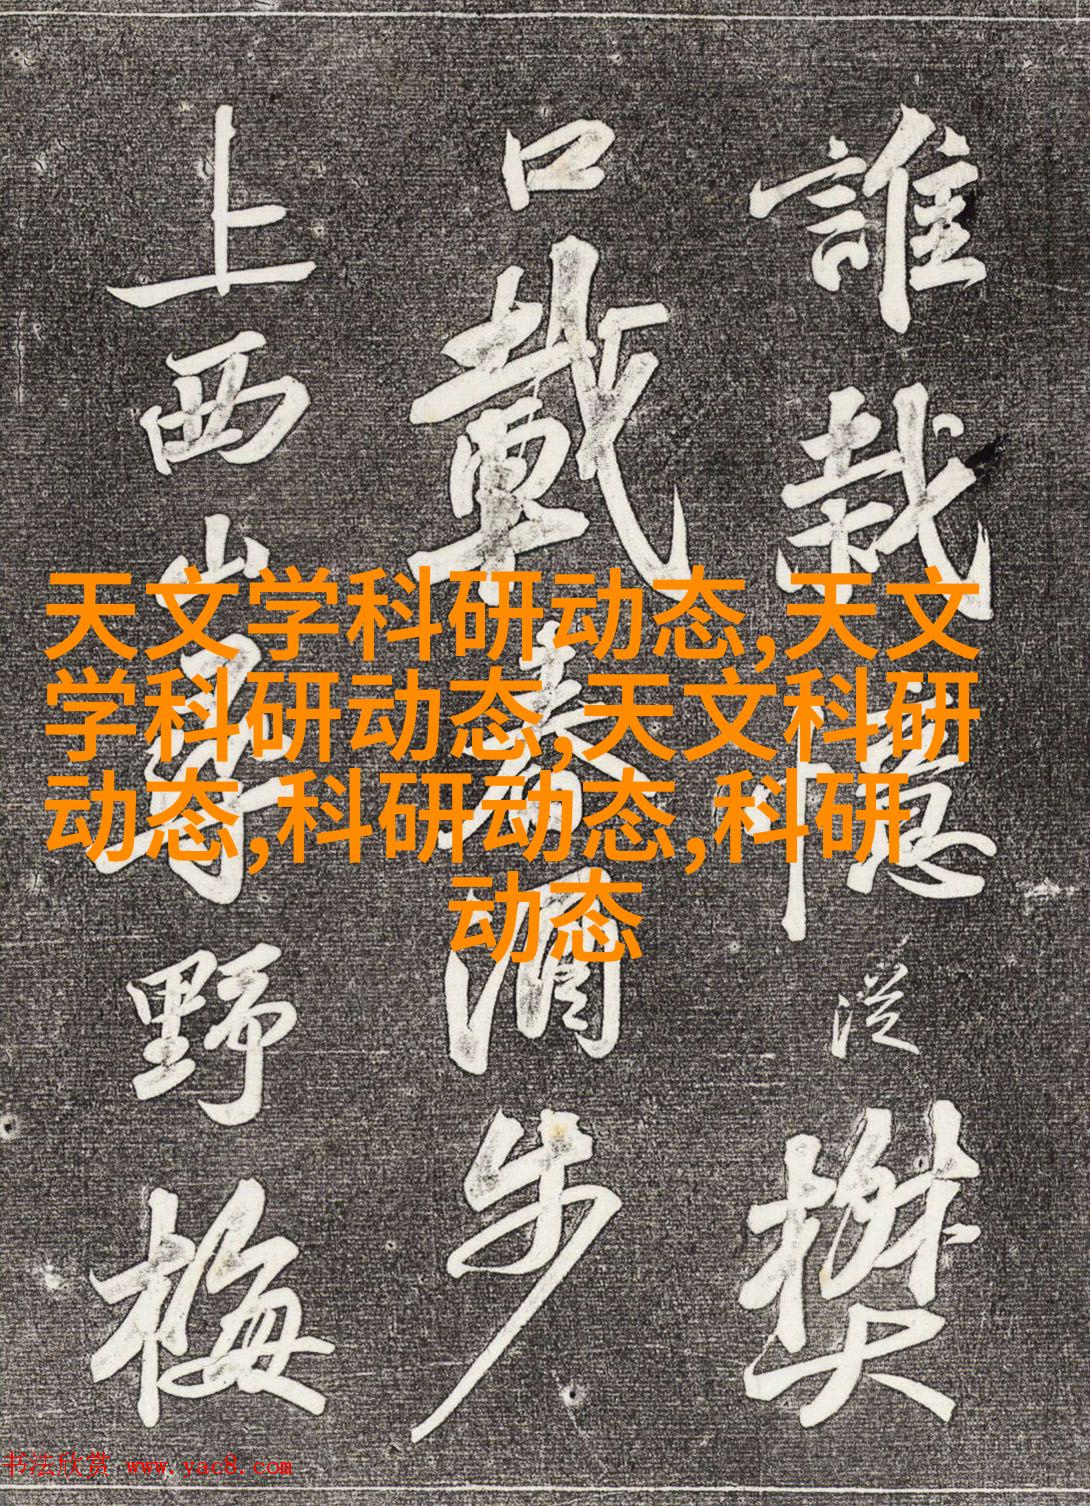 誰栽憶從樊
口載春酒步
上西山尋野梅
天文学科研动态,天文
学科研动态,天文科研
动态,科研动态,科研
动态
书法欣赏 www.yac8.com